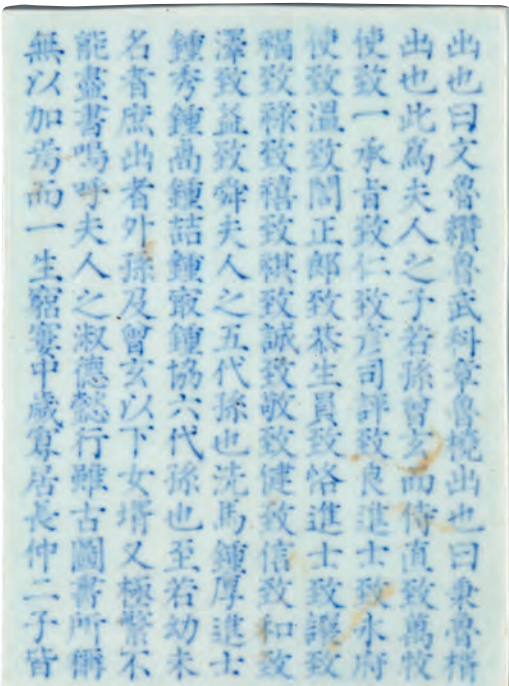 出也曰文魯纘魯武科章魯橈出也曰秉魯楷
出也此爲夫人之子若孫曾玄而侍直致萬牧
使致一承旨致仁致彦司評致良進士致永府
使致溫致閏正郞致恭生員致恪進士致謙致
福致祿致禧致祺致誠致敬致健致信致和致
澤致益致舜夫人之五代孫也洗馬鍾厚進士
鍾秀鍾卨鍾喆鍾㝡鍾協六代孫也至若幼未
名者庶出者外孫及曾玄以下女壻又極繁不
能盡書嗚呼夫人之淑德懿行雖古圖書所稱
無以加焉而一生窮蹇中歲寡居長仲二子皆